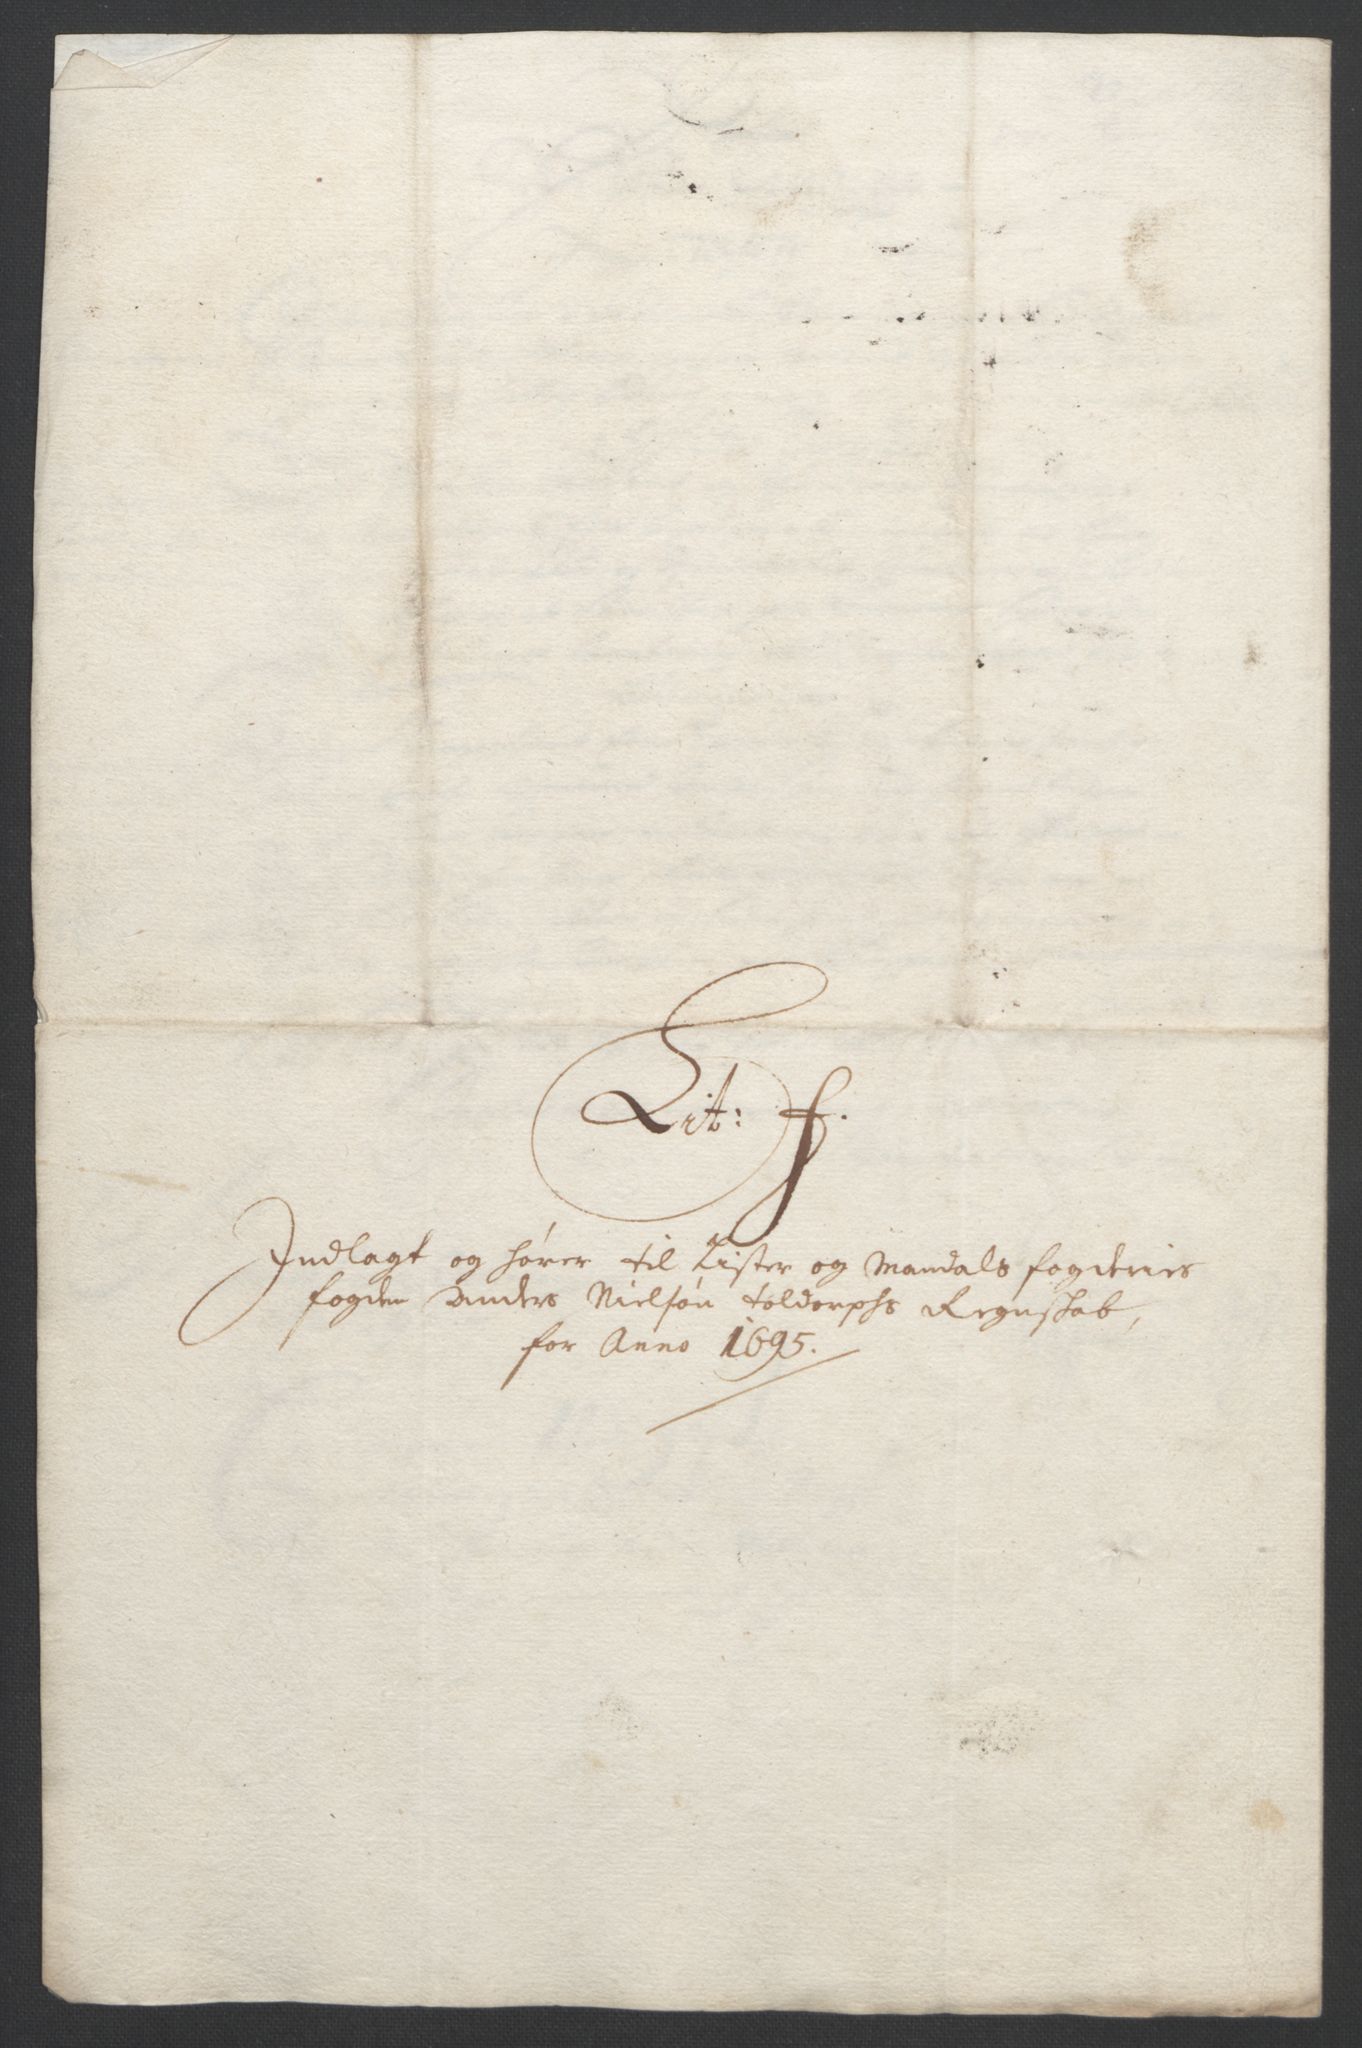 Lit: f.
Indlagt og hører til Lister og Mandals fogderies
fogden Anders Nielsøn toldorphs Regnskab,
for Anno 1695.